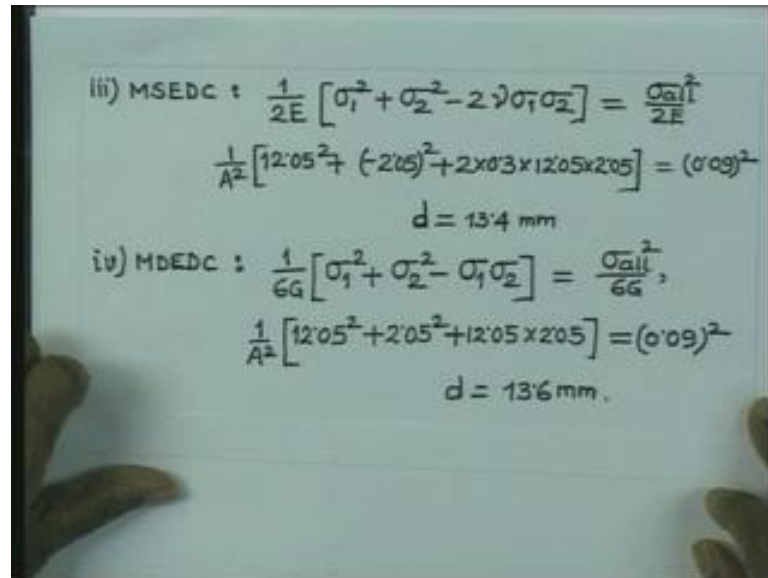 iii) MSEDC : 1/2E [σ₁² + σ₂² - 2νσ₁σ₂] = σall²/2E
1/A² [12·05² + (-2·05)² + 2×0·3×12·05×2·05] = (0·09)²
d = 13·4 mm
iv) MDEDC : 1/6G [σ₁² + σ₂² - σ₁σ₂] = σall²/6G,
1/A² [12·05² + 2·05² + 12·05×2·05] = (0·09)²
d = 13·6 mm.